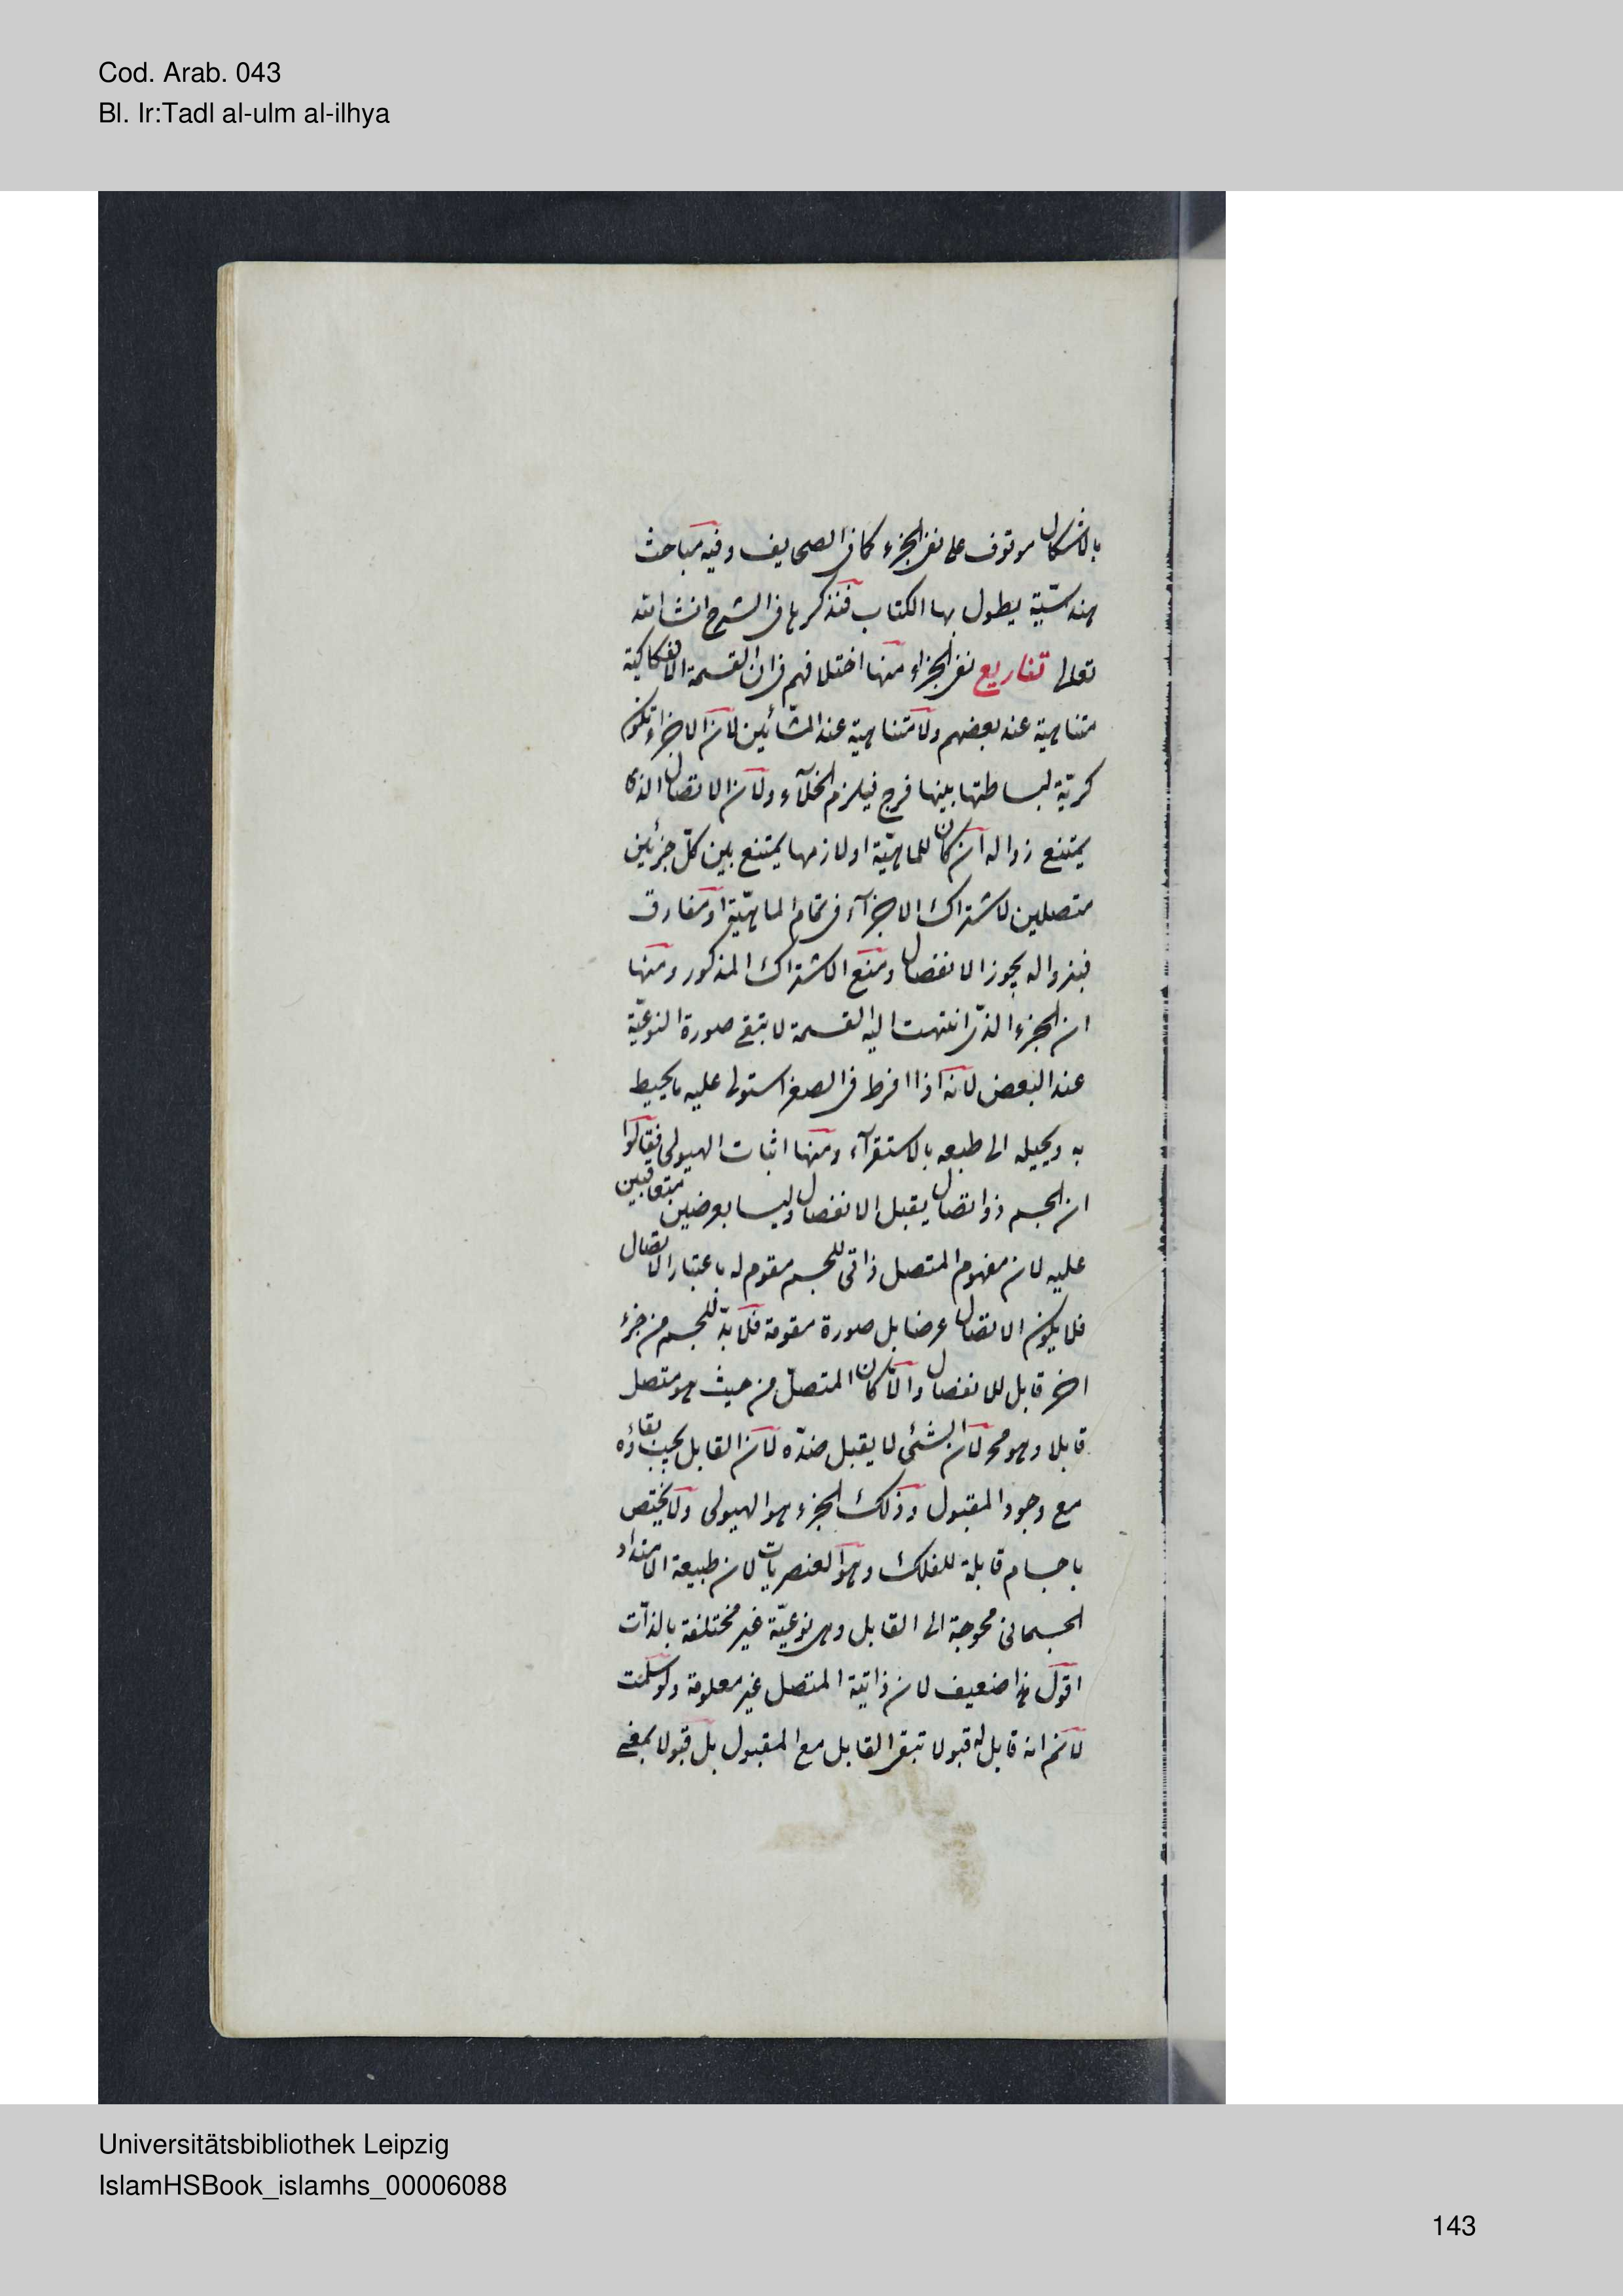 Cod. Arab. 043
Bl. Ir:Tadl al-ulm al-ilhya
بالاشكال موقوف على نفى الجزء كما فى الصحايف وفيه مباحث
هندسيّة يطول بها الكتاب فنذكرها فى الشرح انشاالله
تعالى تفاريع نفى الجزء منها اختلافهم فى ان القسمة الانفكاكية
متناهية عند بعضهم ولا متناهية عند المشّائين لان الاجزاء تكون
كريّة لبساطتها بينها فرج فيلزم الخلآء ولان الاتصال الذى
يمتنع زواله ان كان للماهيّة او لازمها يمتنع بين كلّ جزئين
متصلين لاشتراك الاجزآء فى تمام الماهيّة او مفارق
فبزواله يجوز الانفصال ومنع الاشتراك المذكور ومنها
ان الجزء الذى انتهت اليه القسمة لا تبقى صورة النوعيّة
عند البعض لانه اذا افرط فى الصغر استولى عليه ما يحيط
به ويحيله الى طبعه بالاستقرآء ومنها اثبات الهيولى فقالوا
ان الجسم ذو اتصال يقبل الانفصال وليسا بعرضين متعاقبين
عليه لان مفهوم المتصل ذاتى للجسم مقوم له باعتبار الاتصال
فلا يكون الاتصال عرضا بل صورة مقومة فلا بدّ للجسم من جزء
اخر قابل للانفصال والّا كان المتصل من حيث هو متصل
قابلا وهو مح لان الشئى لا يقبل ضدّه لان القابل يجب بقاؤه
مع وجود المقبول وذلك الجزء هو الهيولى ولا يختص
باجسام قابلة للفلك وهو العنصريات لان طبيعة الامتداد
الجسمانى محوجة الى القابل وهى نوعيّة غير مختلفة بالذات
اقول هذا ضعيف لان ذاتية المتصل غير معلومة ولو سلمت
لانم انه قابل له قبولا تبقى القابل مع المقبول بل قبولا بمعنى
Universitätsbibliothek Leipzig
IslamHSBook_islamhs_00006088
143